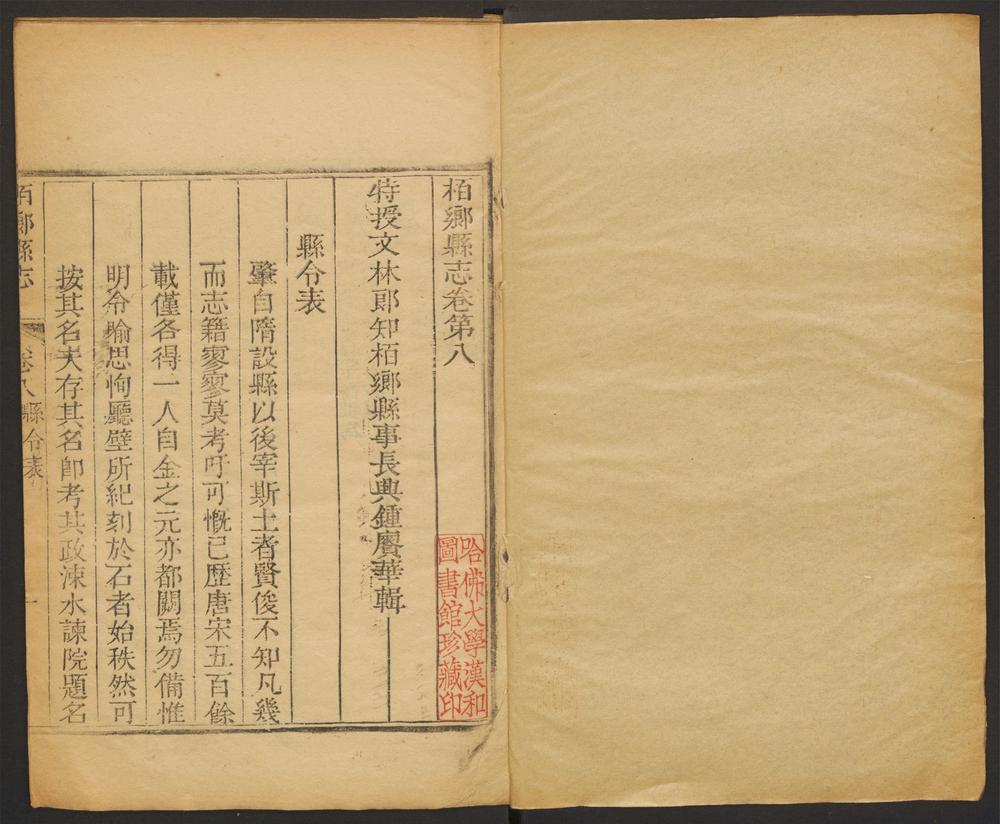 栢鄉縣志卷第八
特授文林郎知栢鄉縣事長興鍾賡華輯
縣令表
肇自隋設縣以後宰斯土者賢俊不知凡幾
而志籍寥寥莫考吁可慨已歷唐宋五百餘
載僅各得一人自金之元亦都闕焉勿備惟
明令喻思恂廳壁所紀刻於石者始秩然可
按其名夫存其名卽考其政涑水諫院題名
栢鄉縣志
卷八縣令表
一
哈佛大學漢和
圖書館珍藏印